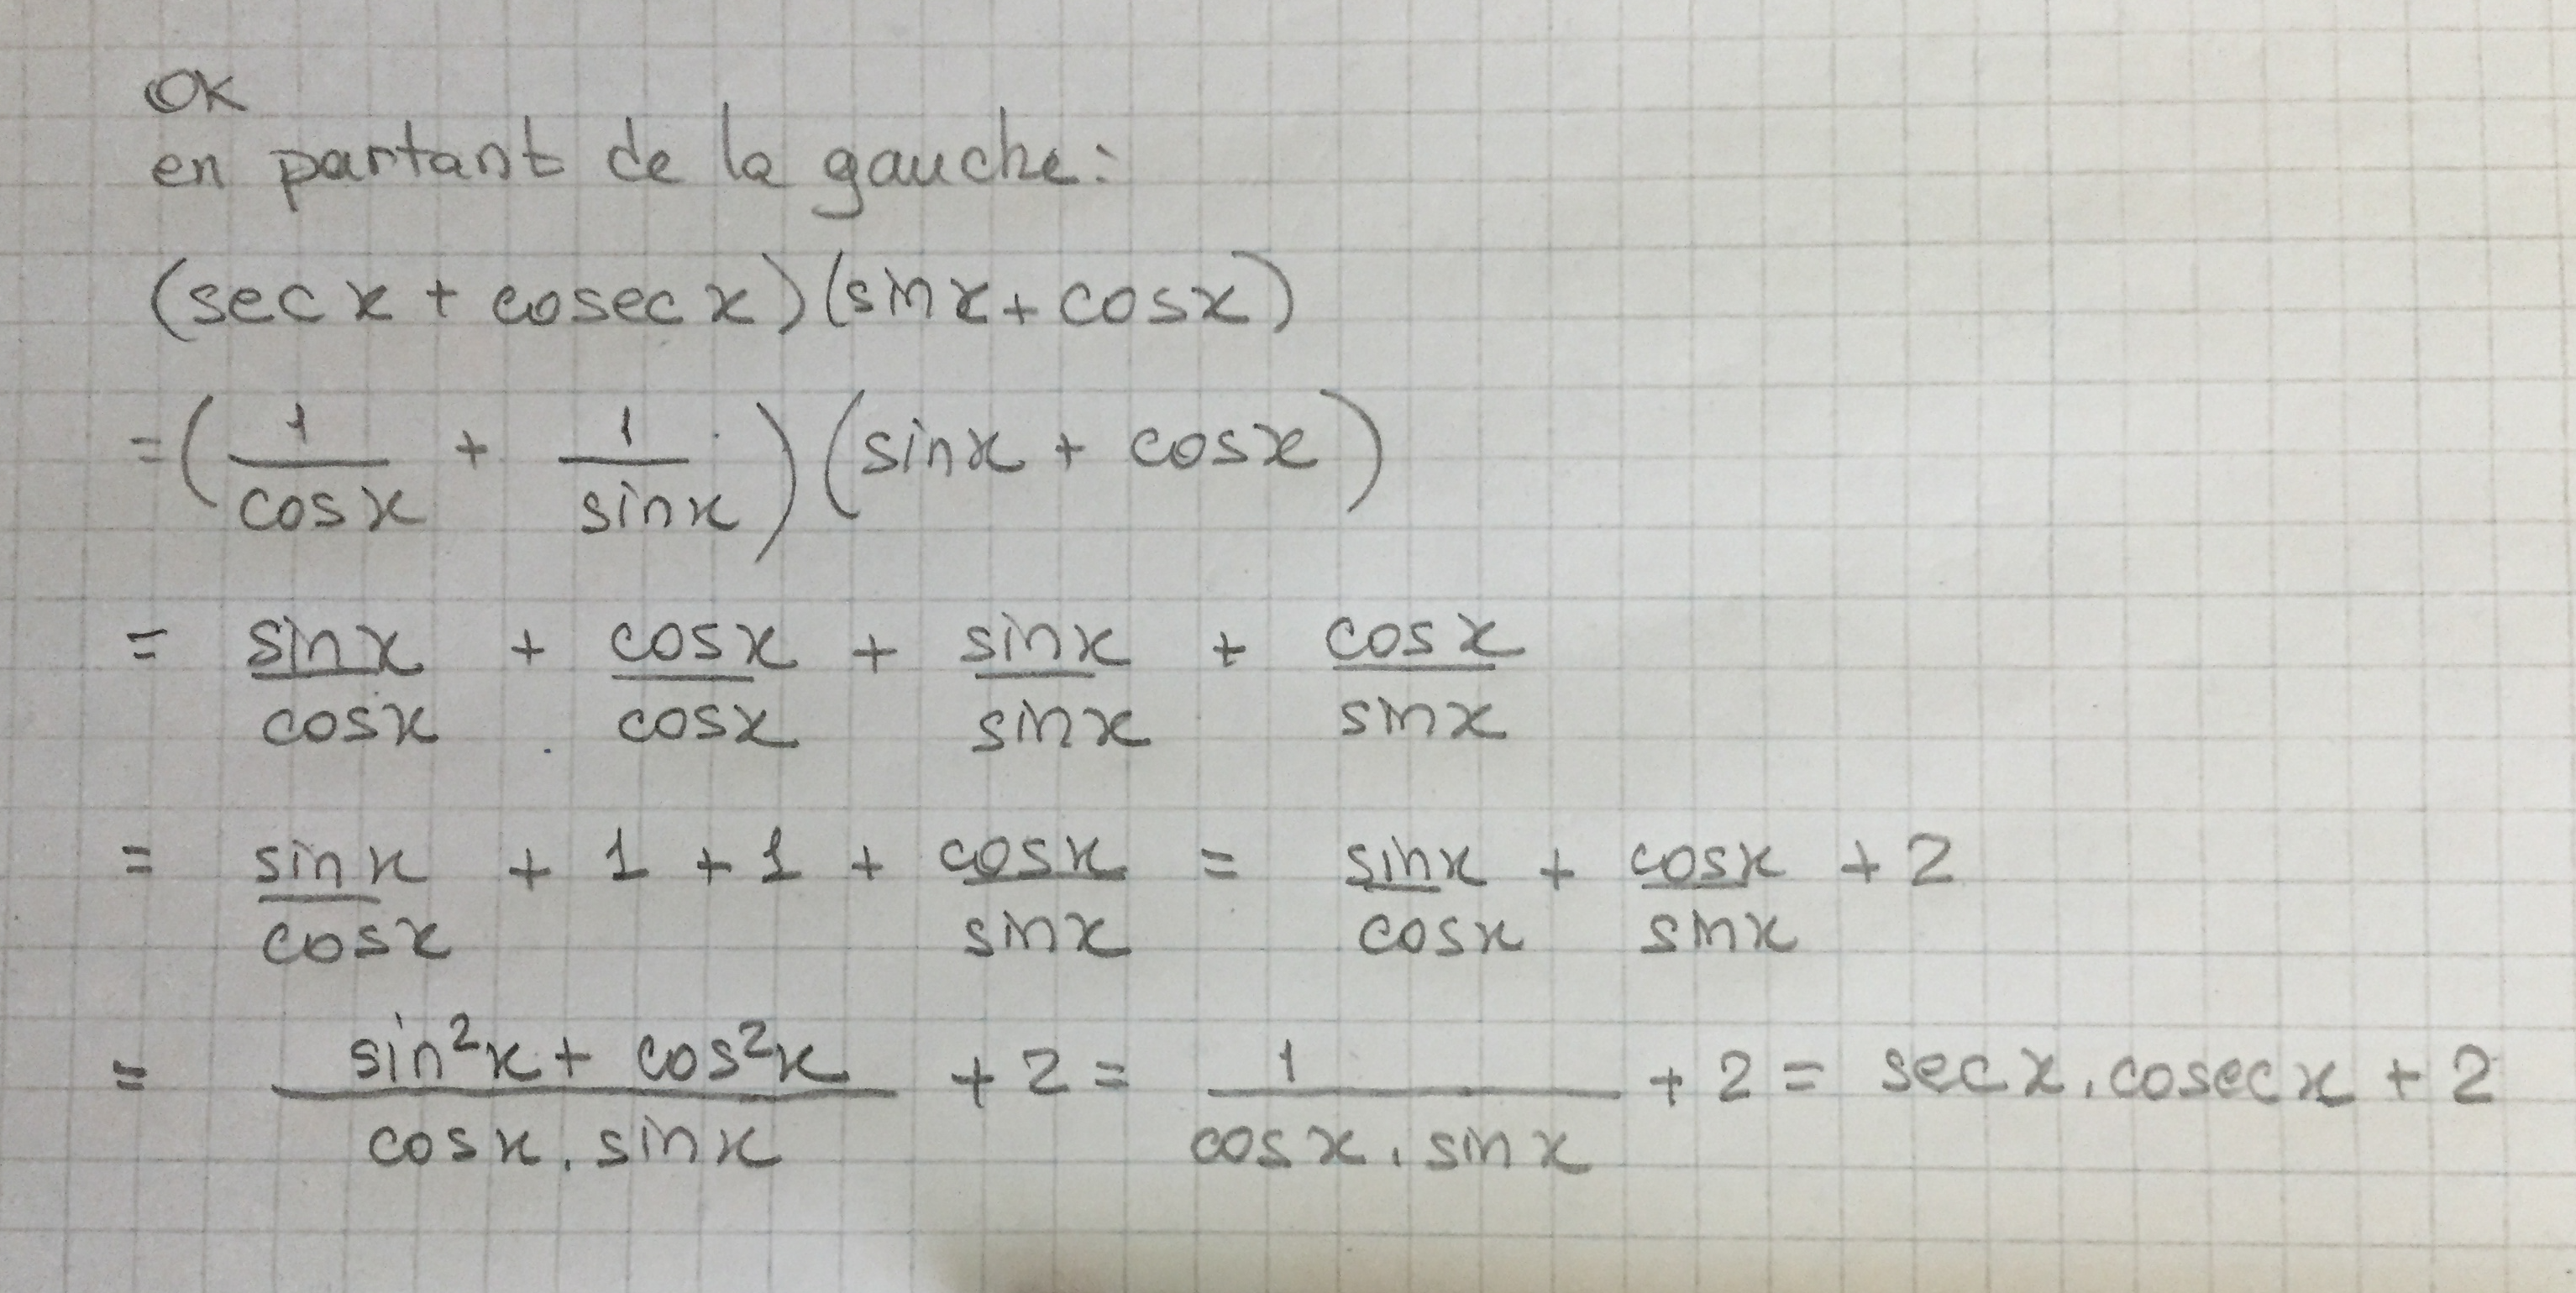 OK
en partant de la gauche:
(sec x + cosec x)(sin x + cos x)
= (1/cos x + 1/sin x)(sin x + cos x)
= sin x/cos x + cos x/cos x + sin x/sin x + cos x/sin x
= sin x/cos x + 1 + 1 + cos x/sin x = sin x/cos x + cos x/sin x + 2
= (sin²x + cos²x)/(cos x . sin x) + 2 = 1/(cos x . sin x) + 2 = sec x . cosec x + 2